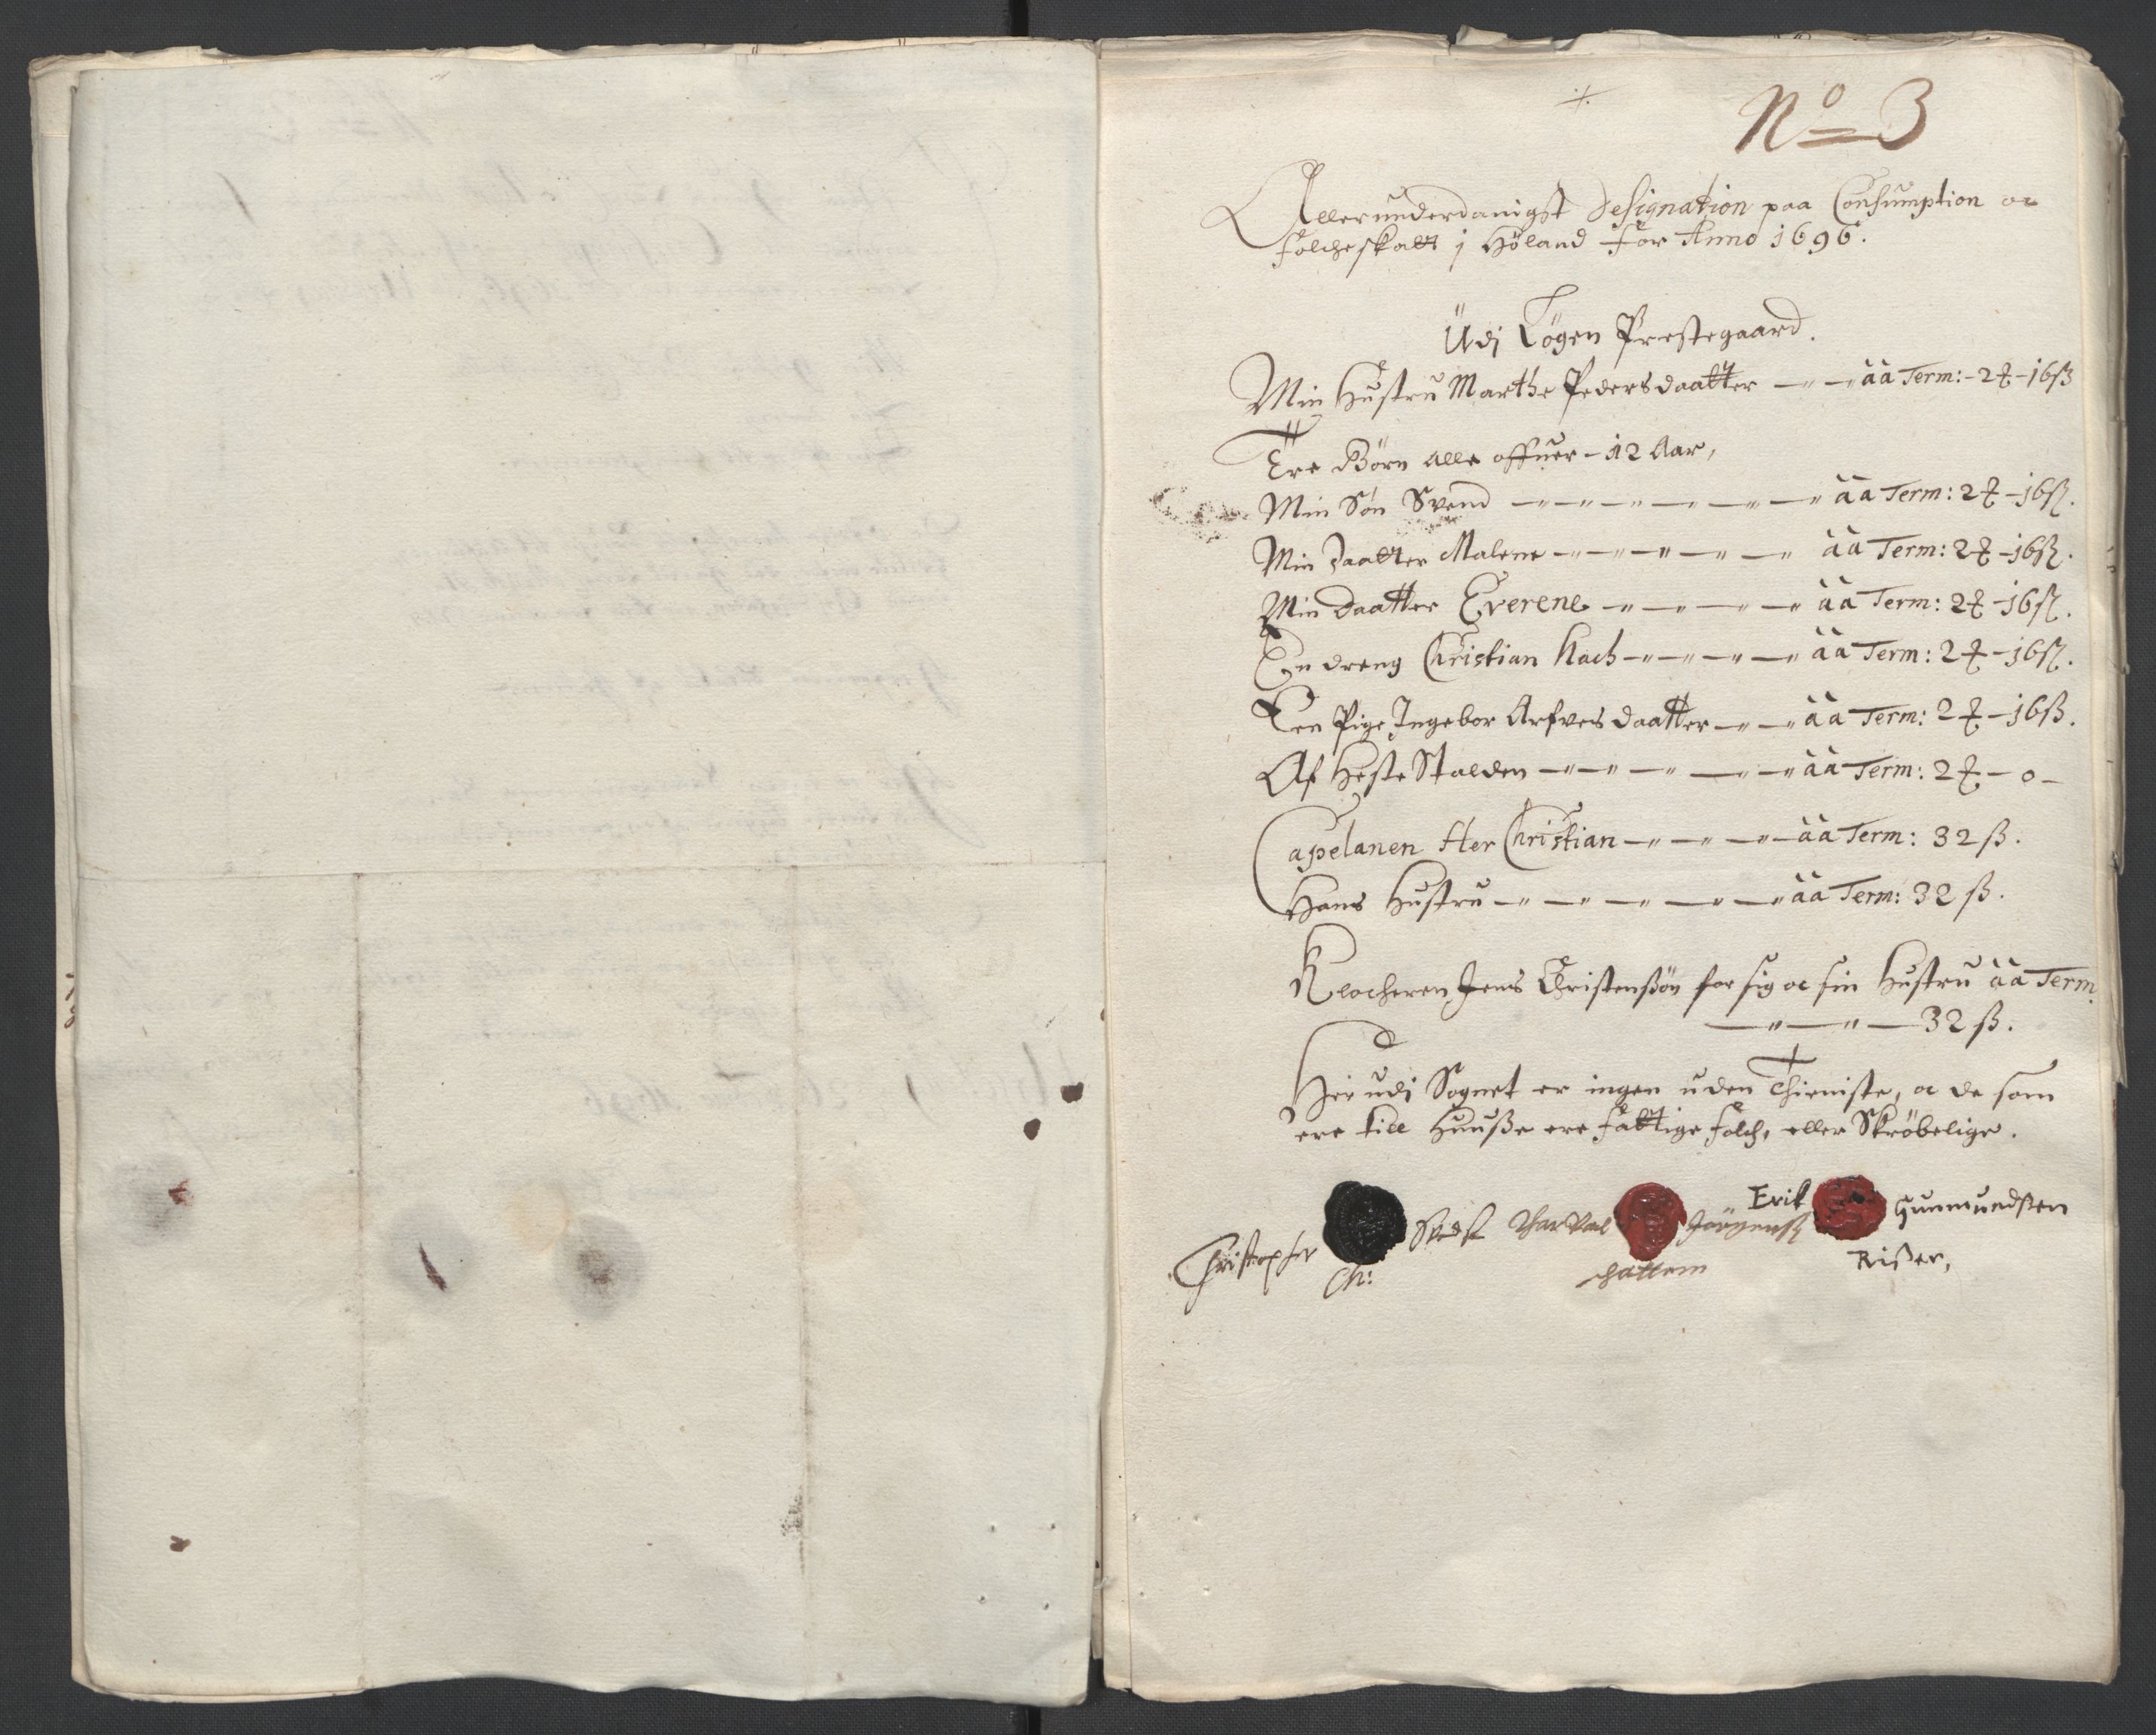 No 3
Allerunderdanigst Designation paa Consumption oc
folcheskatt i Höland for Anno 1696.
Udi Løgen Prestegaard.
Min Hustru Marthe Pedersdaatter —"—" àà Term: - 2 ꝶ - 16 ß
Ere Börn alle offuer - 12 Aar,
Min Sön Svend —"—"—"—"—"—" àà Term: 2 ꝶ - 16 ß.
Min Daatter Malene —"—"—"—"—" àà Term: 2 ꝶ - 16 ß.
Min Daatter Everene —"—"—"—" àà Term: 2 ꝶ - 16 ß.
En dreng Christian Koch —"—"—"—" àà Term: 2 ꝶ - 16 ß.
Een Pige Ingebor Arfvesdaatter —"—" àà Term: 2 ꝶ - 16 ß.
Af Heste Stalden —"—"—"—"—" àà Term: 2 ꝶ - 0 -
Capelanen Her Christian —"—"—"— àà Term: 32 ß.
Hans Hustru —"—"—"—"—" àà Term: 32 ß.
Klocheren Jens Christensßön for sig oc sin Hustru àà Term.
—"—"— 32 ß.
Her udi Sognet er ingen uden Thieniste, oc de som
ere till Huuße ere fattige folch, eller Skröbelige.
Erik Gunmundßen
Christopher Jörgenß
Ch: Rißer,